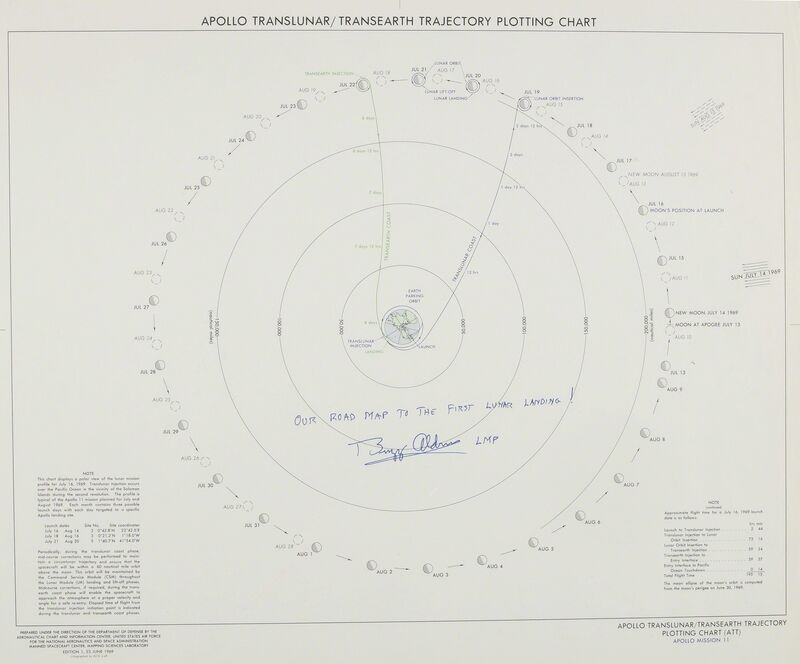 APOLLO TRANSLUNAR/TRANSEARTH TRAJECTORY PLOTTING CHART
TRANSEARTH INJECTION
AUG 18
JUL 21
LUNAR ORBIT
AUG 17
JUL 20
AUG 16
LUNAR LIFT-OFF
LUNAR LANDING
JUL 22
AUG 19
JUL 19
LUNAR ORBIT INSERTION
AUG 15
JUL 23
AUG 20
JUL 18
AUG 14
SUN AUG 13 1969
JUL 24
AUG 21
JUL 17
NEW MOON AUGUST 13 1969
AUG 13
JUL 25
JUL 16
MOON'S POSITION AT LAUNCH
AUG 22
AUG 12
JUL 26
JUL 15
AUG 23
AUG 11
SUN JULY 14 1969
JUL 27
NEW MOON JULY 14 1969
MOON AT APOGEE JULY 13
AUG 24
AUG 10
JUL 28
JUL 13
AUG 9
AUG 25
JUL 29
AUG 8
AUG 26
JUL 30
AUG 7
AUG 27
JUL 31
AUG 6
AUG 28
AUG 1
AUG 5
AUG 2
AUG 3
AUG 4
2 days 12 hrs
2 days
1 day 12 hrs
1 day
12 hrs
TRANSLUNAR COAST
6 days 12 hrs
7 days
7 days 12 hrs
8 days
TRANSEARTH COAST
EARTH
PARKING
ORBIT
TRANSLUNAR
INJECTION
LANDING
LAUNCH
150,000
100,000
50,000
50,000
100,000
150,000
200,000
(nautical miles)
OUR ROAD MAP TO THE FIRST LUNAR LANDING!
Buzz Aldrin LMP
NOTE
This chart displays a polar view of the lunar mission
profile for July 16, 1969. Translunar injection occurs
over the Pacific Ocean in the vicinity of the Solomon
Islands during the second revolution. The profile is
typical of the Apollo 11 mission planned for July and
August 1969. Each month contains three possible
launch days with each day targeted to a specific
Apollo landing site.
Launch dates Site No. Site coordinates
July 16 Aug 14
July 18 Aug 16
July 21 Aug 20
Periodically, during the translunar coast phase,
mid-course corrections may be performed to maintain
a circumlunar trajectory and ensure that the
spacecraft will be within a 60 nautical mile orbit
above the moon. This orbit will be maintained
by the Command Service Module (CSM) throughout
the Lunar Module (LM) landing and lift-off phases.
Midcourse corrections, if required, during the transearth
coast phase will enable the spacecraft to
approach the atmosphere at a proper velocity and
angle for a safe re-entry. Elapsed time of flight from
the translunar injection initiation point is indicated
during the translunar and transearth coast phases.
NOTE
continued
Approximate flight time for a July 16, 1969 launch
date is as follows:
hrs min
Launch to Translunar Injection 2 44
Translunar Injection to Lunar
Orbit Insertion
Lunar Orbit Insertion to
Transearth Injection
Transearth Injection to
Entry Interface
Entry Interface to Pacific
Ocean Touchdown
Total Flight Time
The mean ellipse of the moon's orbit is computed
from the moon's perigee on June 30, 1969.
PREPARED UNDER THE DIRECTION OF THE DEPARTMENT OF DEFENSE BY THE
AERONAUTICAL CHART AND INFORMATION CENTER, UNITED STATES AIR FORCE
FOR THE NATIONAL AERONAUTICS AND SPACE ADMINISTRATION
MANNED SPACECRAFT CENTER, MAPPING SCIENCES LABORATORY
EDITION 1, 25 JUNE 1969
APOLLO TRANSLUNAR/TRANSEARTH TRAJECTORY
PLOTTING CHART (ATT)
APOLLO MISSION 11